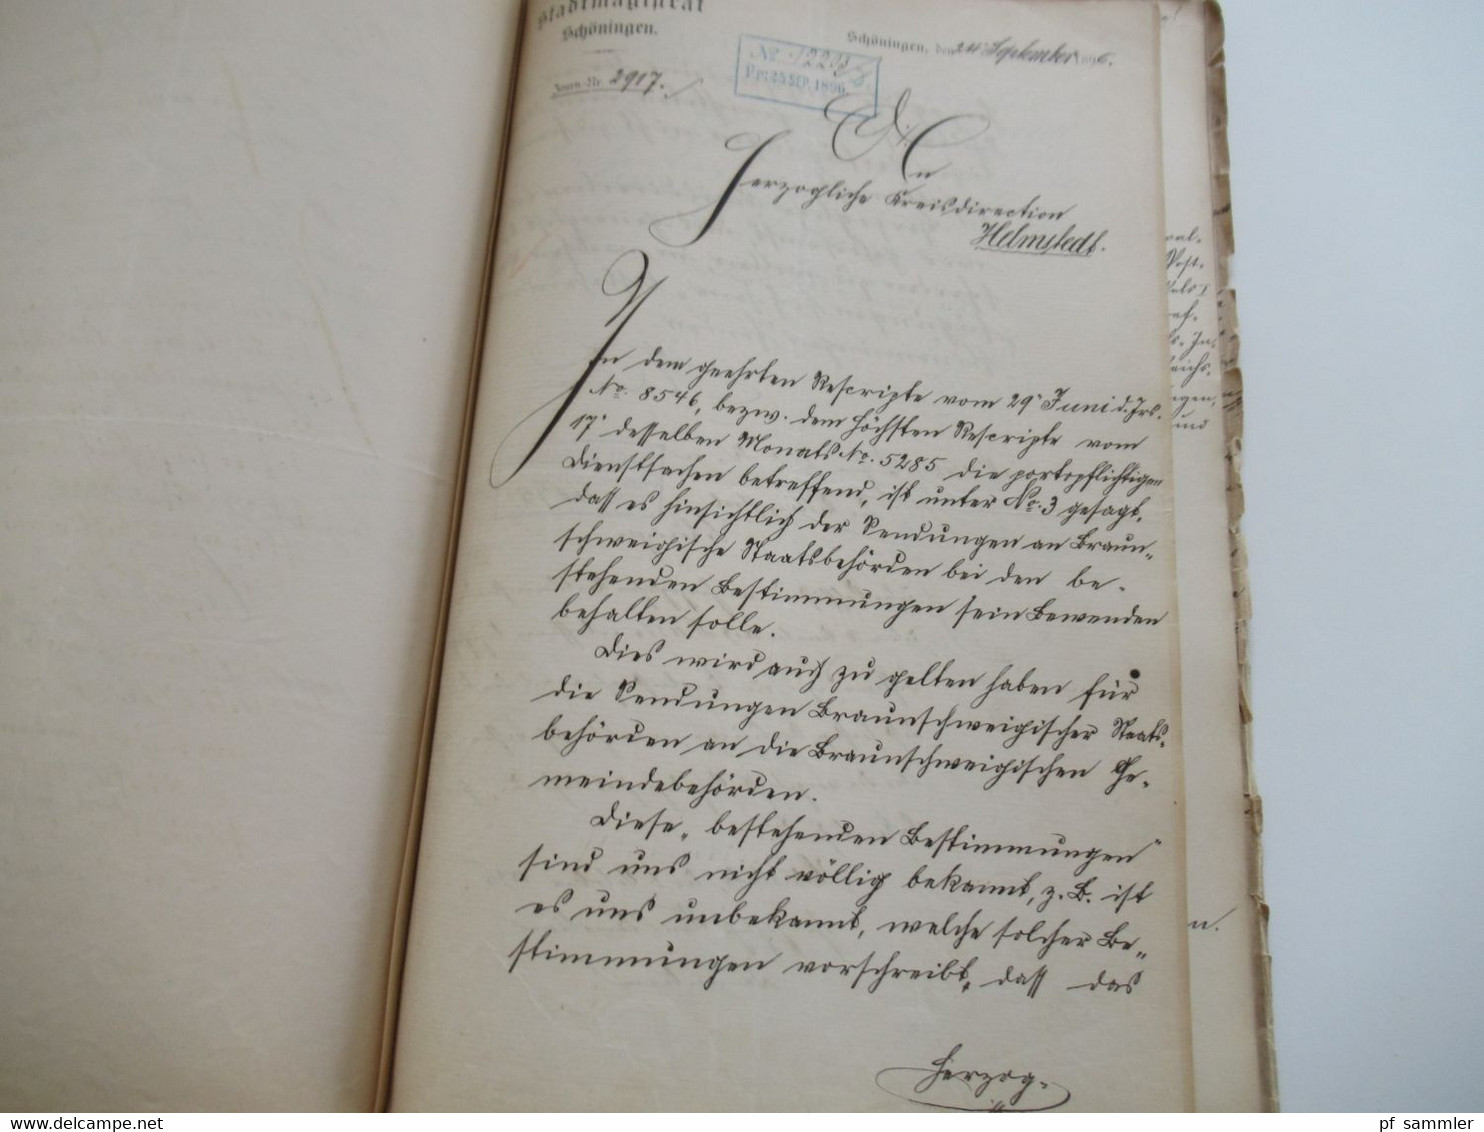 Stadtmagistrat
Schöningen.
Schöningen, den 24 September 1896.
Journ.-Nr. 2917.
Pr: 25 SEP. 1896
An
Herzogliche Kreisdirection
Helmstedt.
In dem geehrten Rescripte vom 29. Juni d. Jrs.
No. 8546, bezw. dem höchsten Rescripte vom
17. desselben Monats No. 5285 die portopflichtigen
Dienstsachen betreffend, ist unter No. 3 gesagt,
dass es hinsichtlich der Sendungen an Braun-
schweigische Staatsbehörden bei den be-
stehenden Bestimmungen sein Bewenden
behalten solle.
Dies wird auch zu gelten haben für
die Sendungen Braunschweigischer Staats-
behörden an die Braunschweigischen Ge-
meindebehörden.
Diese „bestehenden Bestimmungen"
sind uns nicht völlig bekannt, z. B. ist
es uns unbekannt, welche solcher Be-
stimmungen vorschreibt, dass das
Herzog-
und
n.
pf_sammler